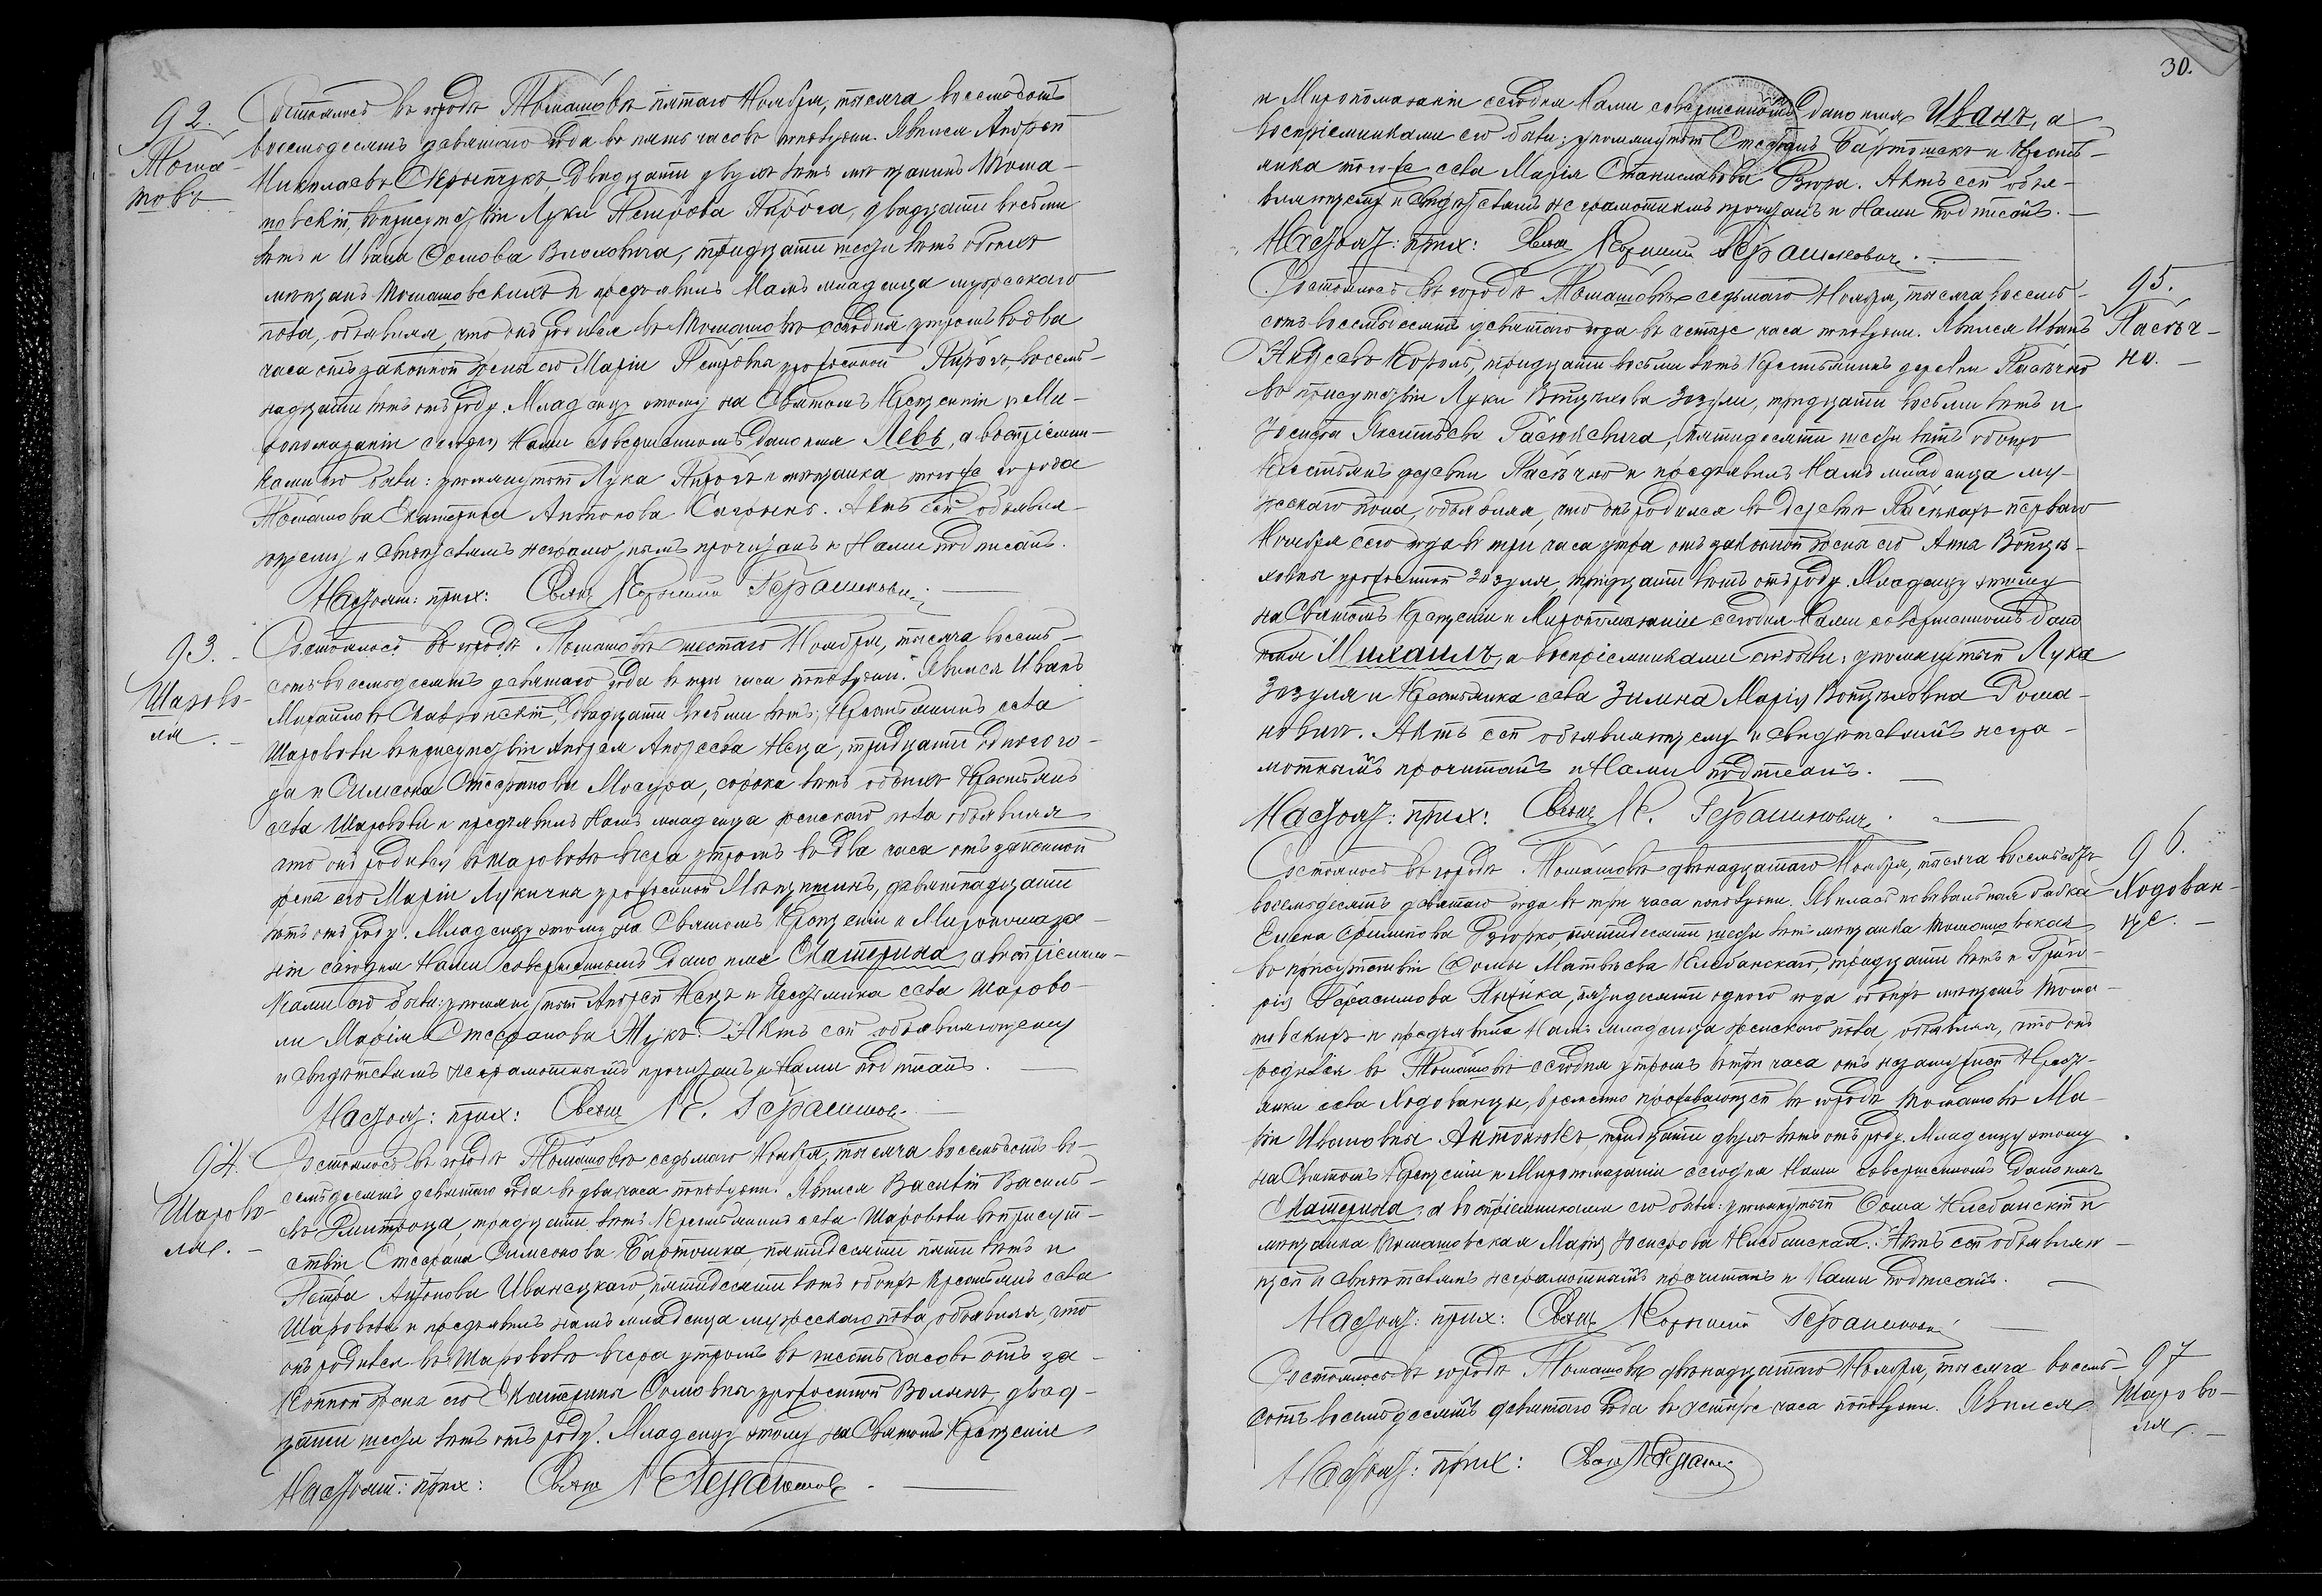 92.
Тома-
шовъ
Состоялось въ городѣ Томашовѣ пятаго Ноября, тысяча восемьсотъ
восемьдесятъ девятаго года въ пять часовъ пополудни. Явился Андрей
Николаевъ Скрыпчукъ, двадцати двухъ лѣтъ мѣщанинъ Тома-
шовскій, въ присутствіи Луки Петрова Пирога, двадцати восьми
лѣтъ и Ивана Сомова, тридцати шести лѣтъ обоихъ
мѣщанъ Томашовскихъ и предъявилъ Намъ младенца мужескаго
пола, объявляя, что онъ родился въ Томашовѣ сегодня утромъ въ два
часа отъ законной жены его Маріи Петровны урожденной Пирогъ, восем-
надцати лѣтъ отъ роду. Младенцу этому на Святомъ Крещеніи и Ми-
ропомазаніи сегодня Нами совершенномъ дано имя Левъ, а воспріемни-
ками его были: упомянутый Лука Пирогъ и мѣщанка того же города
Томашова Екатерина Антонова. Актъ сей объявля-
ющему и свидѣтелямъ неграмотнымъ прочитанъ и Нами подписанъ.
Настоят: прих: Свящ Корнилій Герасимович
93.
Шарово-
ля.
Состоялось въ городѣ Томашовѣ шестаго Ноября, тысяча восемь-
сотъ восемьдесятъ девятаго года въ три часа пополудни. Явился Иванъ
Михайловъ, двадцати восьми лѣтъ, Крестьянинъ села
Шароволи въ присутствіи Андрея Андреева Неца, тридцати одного го-
да и Симеона Стефанова Мосура, сорока лѣтъ обоихъ Крестьянъ
села Шароволи и предъявилъ Намъ младенца женскаго пола объявляя
что онъ родился въ Шароволѣ вчера утромъ въ два часа отъ законной
жены его Маріи Лукичны урожденной, девятнадцати
лѣтъ отъ роду. Младенцу этому на Святомъ Крещеніи и Миропомаза-
ніи сегодня Нами совершенномъ дано имя Екатерина, а воспріемни-
ками его были: упомянутый Андрей Нецъ и Крестьянка села Шарово-
ли Марія Стефанова Жукъ. Актъ сей объявляющему
и свидѣтелямъ неграмотнымъ прочитанъ и Нами подписанъ.
Настоят: прих: Свящ К. Герасимов
94.
Шарово-
ля.
Состоялось въ городѣ Томашовѣ седьмаго Ноября, тысяча восемьсотъ во-
семьдесятъ девятаго года въ два часа пополудни. Явился Василій Василь-
евъ Дмитроца, тридцати лѣтъ Крестьянинъ села Шароволи въ присут-
ствіи Стефана Симеонова Бартошика, пятидесяти пяти лѣтъ и
Петра Антонова Иванецкаго, пятидесяти лѣтъ обоихъ Крестьянъ села
Шароволи и предъявилъ намъ младенца мужескаго пола, объявляя, что
онъ родился въ Шароволѣ вчера утромъ въ шесть часовъ отъ за-
конной жены его Екатерины Сомовны урожденной Волякъ, двад-
цати шести лѣтъ отъ роду. Младенцу этому на Святомъ Крещеніи
Настоят: прих: Свящ К Герасимов
30.
и Миропомазаніи сегодня Нами совершенномъ дано имя Иванъ, а
воспріемниками его были: упомянутый Стефанъ Бартошикъ и Кресть-
янка того же села Марія Станиславова. Актъ сей объя-
вляющему и свидѣтелямъ неграмотнымъ прочитанъ и Нами подписанъ.
Настоят: прих: Свящ Корнилій Герасимович
95.
Пасѣч-
но.
Состоялось въ городѣ Томашовѣ седьмаго Ноября, тысяча восемь-
сотъ восемьдесятъ девятаго года въ четыре часа пополудни. Явился Иванъ
Король, тридцати восьми лѣтъ Крестьянинъ деревни Пасѣчно
въ присутствіи Луки Войцѣхова Зозули, тридцати восьми лѣтъ и
Іосифа, пятидесяти шести лѣтъ обоихъ
Крестьянъ деревни Пасѣчно и предъявилъ Намъ младенца му-
жескаго пола, объявляя, что онъ родился въ деревнѣ Пасѣкахъ перваго
Ноября сего года въ три часа утра отъ законной жены его Анны Войцѣ-
ховны урожденной Зозуля, тридцати лѣтъ отъ роду. Младенцу этому
на Святомъ Крещеніи и Миропомазаніи сегодня Нами совершенномъ дано
имя Михаилъ, а воспріемниками его были: упомянутый Лука
Зозуля и Крестьянка села Зимна Марія Войцѣховна Рома-
новичъ. Актъ сей объявляющему и свидѣтелямъ негра-
мотнымъ прочитанъ и Нами подписанъ.
Настоят: прих: Свящ К. Герасимович
96.
Ходован-
це.
Состоялось въ городѣ Томашовѣ двѣнадцатаго Ноября, тысяча восемьсотъ
восемьдесятъ девятаго года въ три часа пополудни. Явилась повивальная бабка
Елена, пятидесяти шести лѣтъ мѣщанка Томашовская
въ присутствіи Фомы Матвѣева Клебанскаго, тридцати лѣтъ и Григо-
рія Герасимова, пятидесяти одного года обоихъ мѣщанъ Тома-
шовскихъ и предъявила Намъ младенца женскаго пола, объявляя, что онъ
родился въ Томашовѣ сегодня утромъ въ три часа отъ незамужней Кресть-
янки села Ходованцы, временно проживающей въ городѣ Томашовѣ Ма-
ріи Ивановны Антонюкъ, тридцати двухъ лѣтъ отъ роду. Младенцу этому
на Святомъ Крещеніи и Миропомазаніи сегодня Нами совершенномъ дано имя
Екатерина, а воспріемниками его были: упомянутый Фома Клебанскій и
мѣщанка Томашовская Марія Іосифова Клебанская. Актъ сей объявляю-
щей и свидѣтелямъ неграмотнымъ прочитанъ и Нами подписанъ.
Настоят: прих: Свящ Корнилій Герасимович
97
Шарово-
ля.
Состоялось въ городѣ Томашовѣ двѣнадцатаго Ноября, тысяча восемь-
сотъ восемьдесятъ девятаго года въ четыре часа пополудни. Явился
Настоят: прих: Свящ